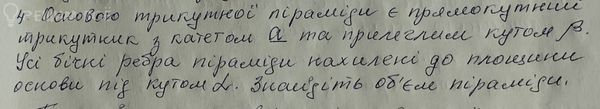 4. Основою трикутної піраміди є прямокутний
трикутник з катетом a та прилеглим кутом β.
Усі бічні ребра піраміди нахилені до площини
основи під кутом α. Знайдіть об'єм піраміди.